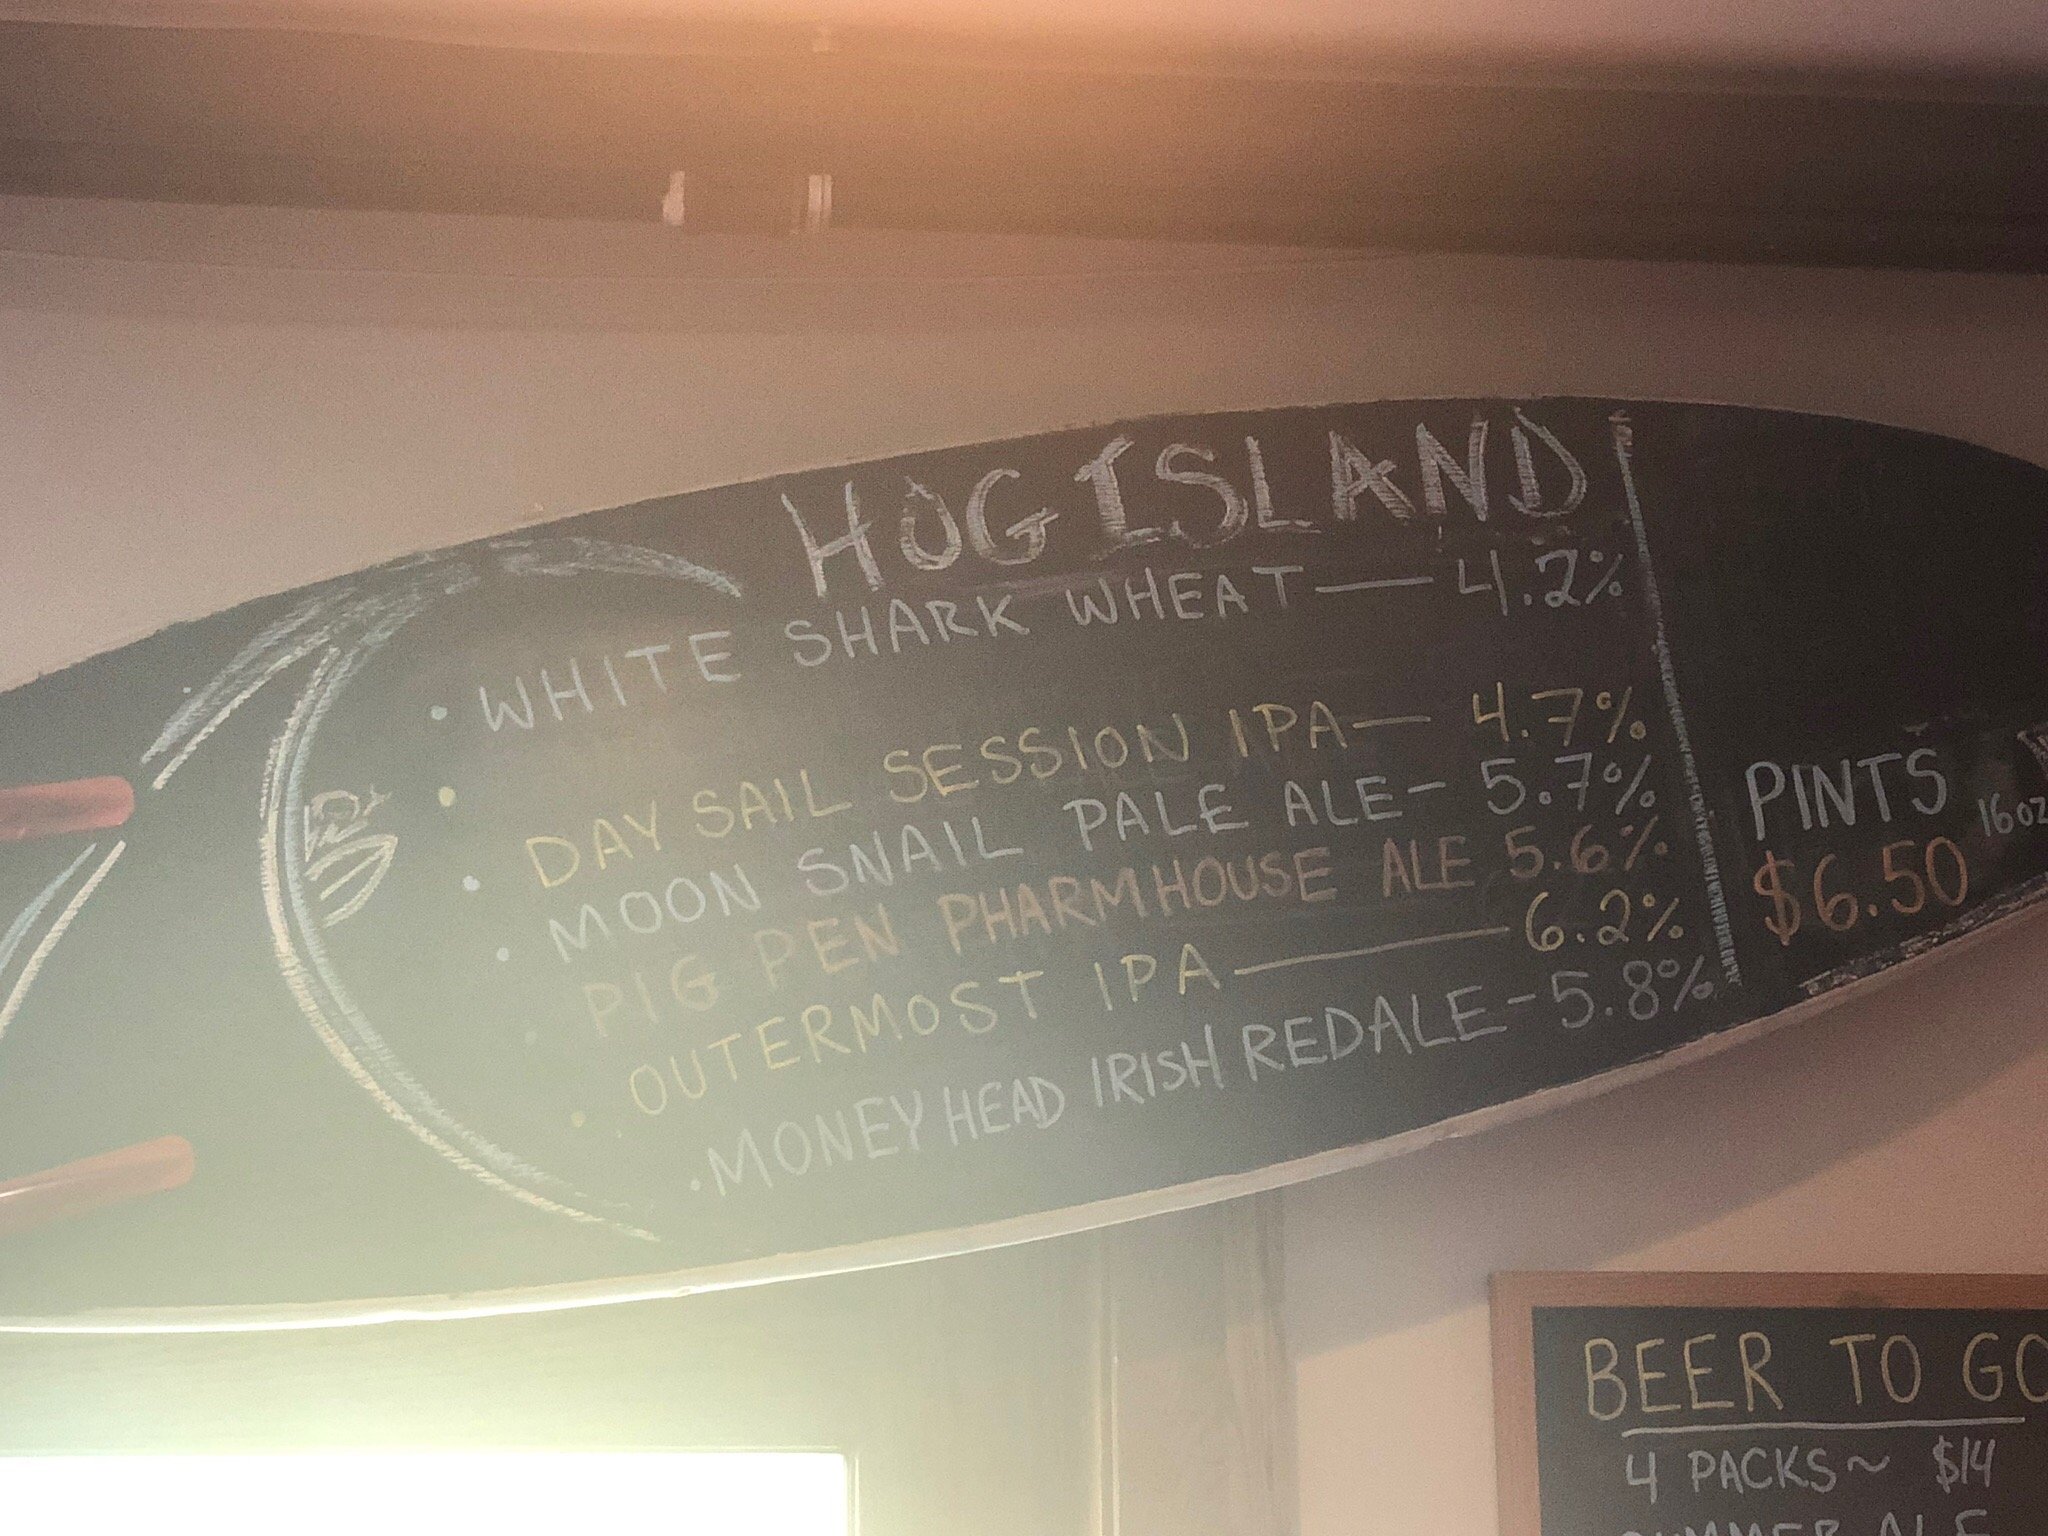 HOG ISLAND
• WHITE SHARK WHEAT — 4.2%
• DAY SAIL SESSION IPA — 4.7%
• MOON SNAIL PALE ALE - 5.7%
• PIG PEN PHARMHOUSE ALE 5.6%
• OUTERMOST IPA — 6.2%
• MONEYHEAD IRISH RED ALE - 5.8%
PINTS
16oz
$6.50
BEER TO GO
4 PACKS ~ $14
SUMMER ALE